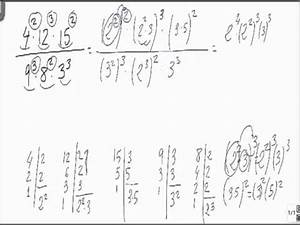 4² · 12³ · 15² / 9³ · 8² · 3³ = (2²)² · (2² · 3)³ · (3 · 5)² / (3²)³ · (2³)² · 3³ = 2⁴ (2²)³ (3)³
4 | 2
2 | 2
1 | 2²
12 | 2
6 | 2
3 | 3
1 | 2² · 3
15 | 3
5 | 5
1 | 3 · 5
9 | 3
3 | 3
1 | 3²
8 | 2
4 | 2
2 | 2
1 | 2³
(3 · 5)² = (3)² (5)²
1/1